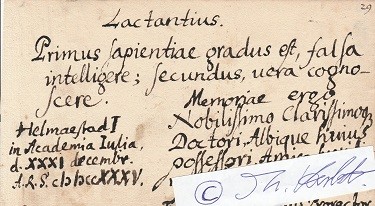 29
Lactantius.
Primus sapientiae gradus est, falsa
intelligere; secundus, uera cogno-
scere.
Memoriae ergo
Nobilissimo Clarissimoq
Doctori, Albique huius
possessori,
Helmaestad I
in Academia Iulia,
d. XXXI decembr.
A.R.S. cIɔIɔccXXXV.
©